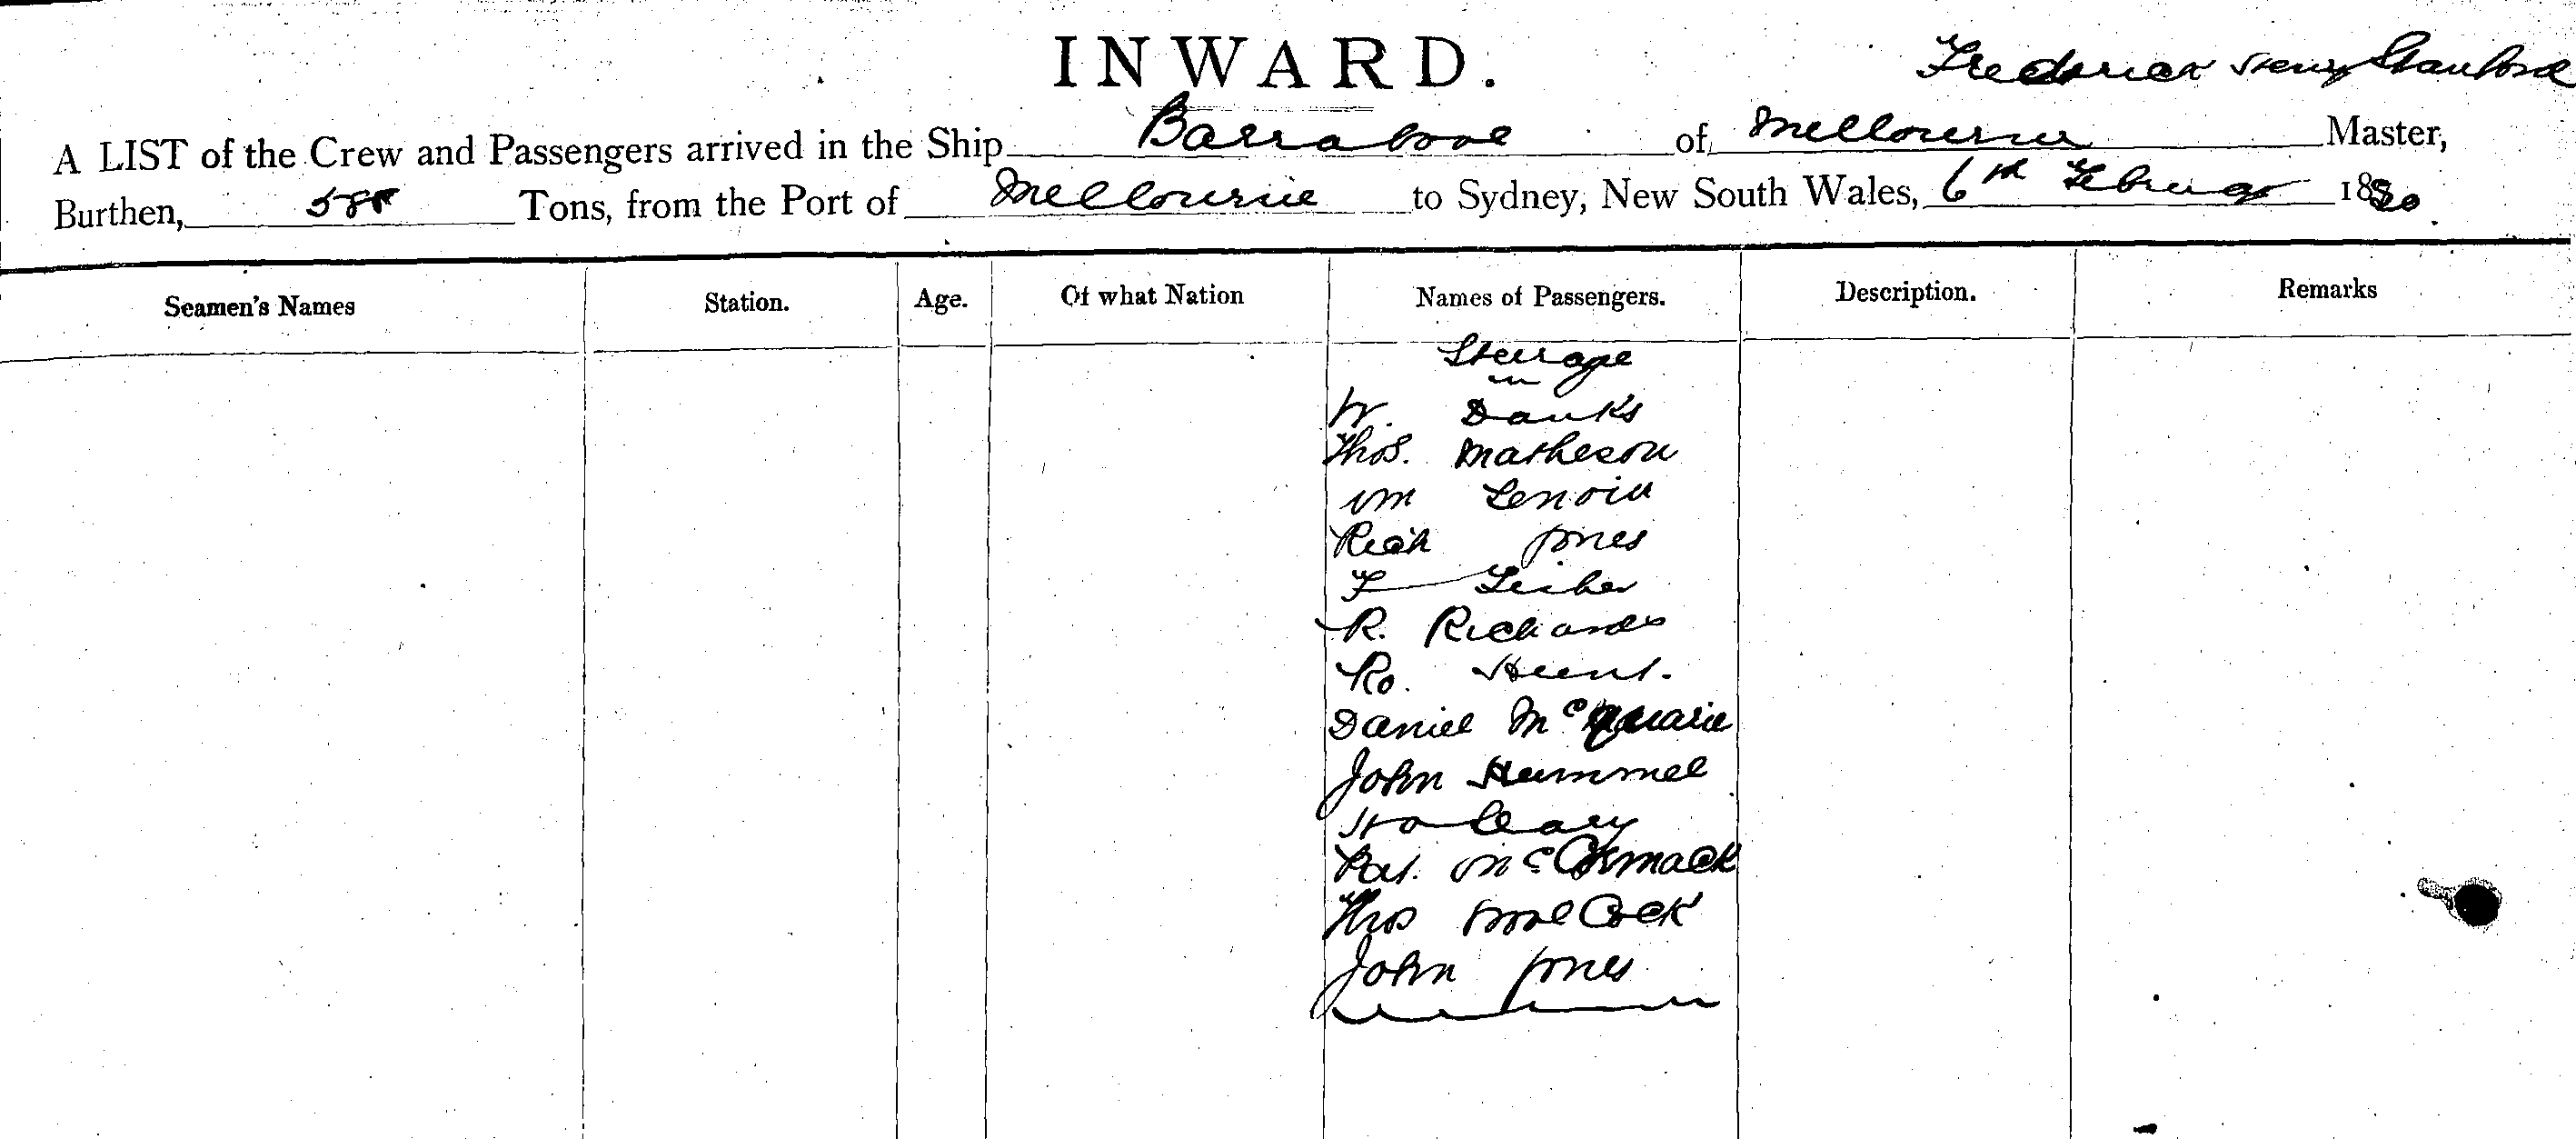 INWARD.
Frederick Henry Stanford
A LIST of the Crew and Passengers arrived in the Ship Barrabool of Melbourne Master,
Burthen, Tons, from the Port of Melbourne to Sydney, New South Wales, 6th February 1880
Seamen's Names Station. Age. Of what Nation Names of Passengers. Description. Remarks
Steerage
W. Danks
Thos. Matheson
Wm Lenoir
Rich Jones
F Leiher
R. Richards
Ro. Hunt.
Daniel McQuarie
John Hummel
O Leary
Pat. McCormack
Thos Cock
John Jones